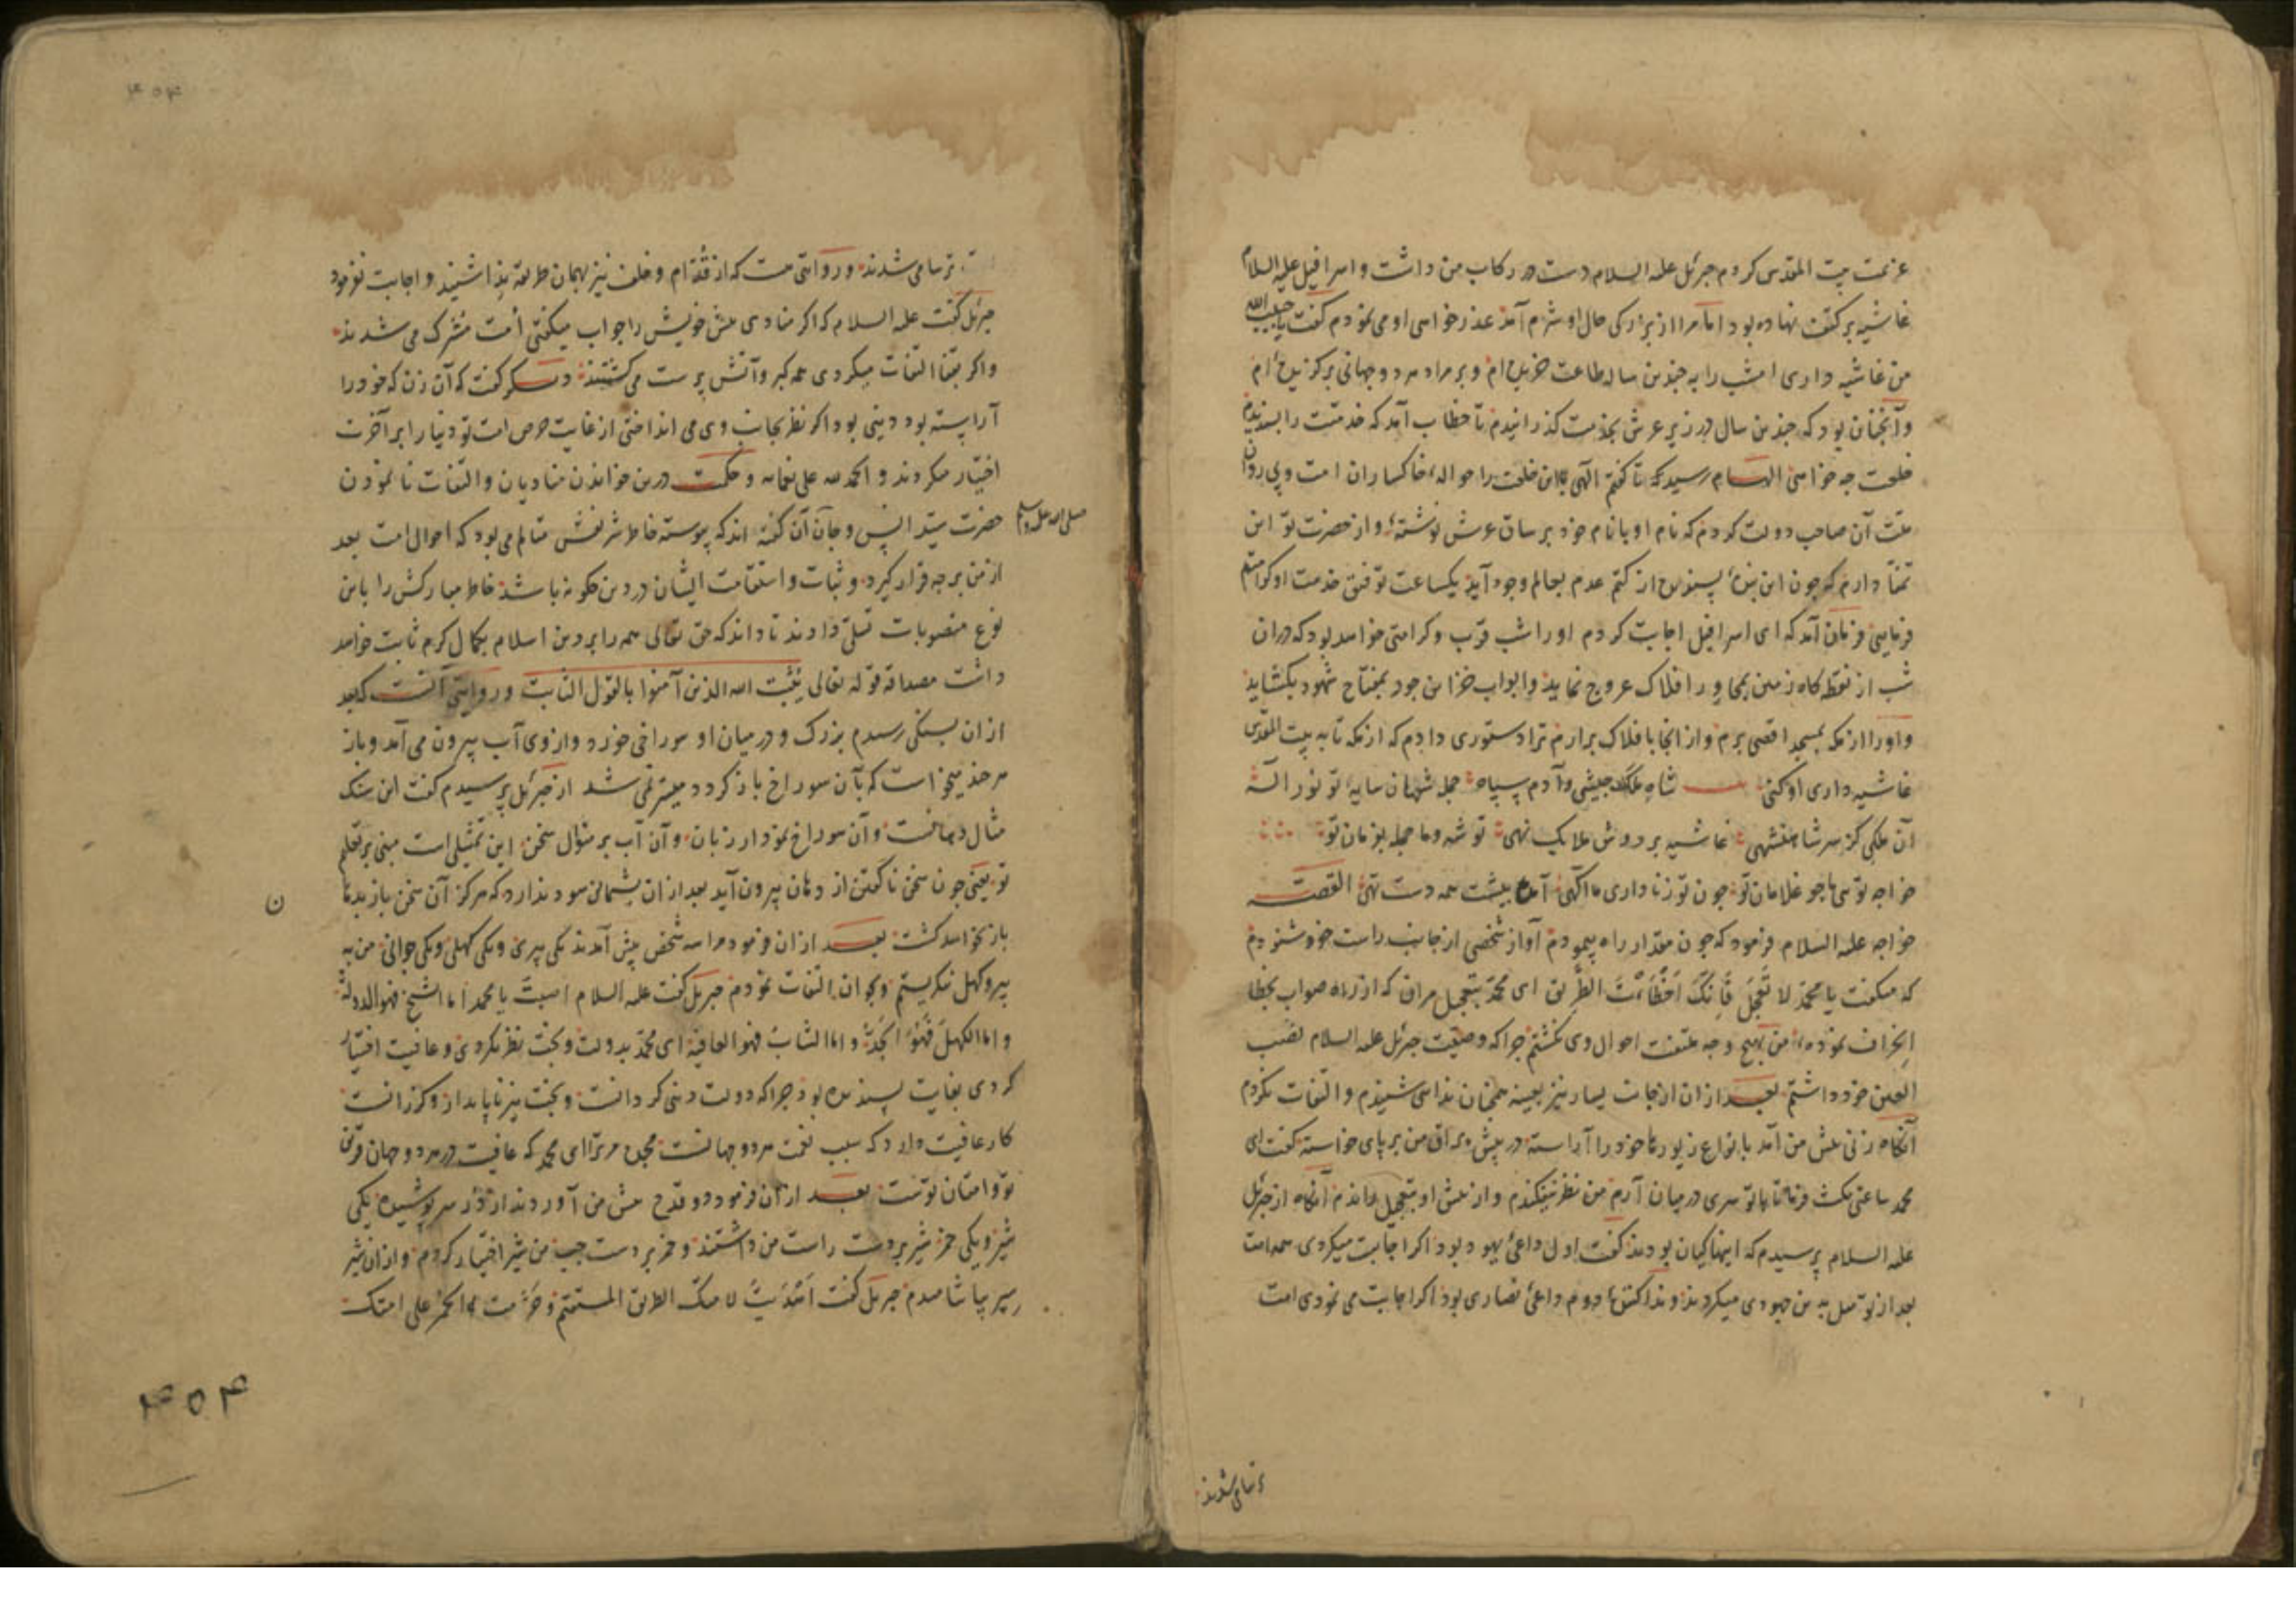 عزیمت بیت المقدس کردم جبرئل علیه السلام دست در رکاب من داشت و اسرافیل علیه السلام
غاشیه بر کتف نهاده بود اما مرا از بزرکی حال او شرم آمد عذرخواهی او می نمودم کفت یا حبیب الله
من غاشیه داری امشب را به چندین ساله طاعت خریده ام و بر مراد هر دو جهانی برکزیده ام
و آنچنان بود که چندین سال در زیر عرش بخدمت کذرانیدم تا خطاب آمد که خدمتت را پسندیدم
خلعت چه خواهی الهام رسید که تا کفتم الهی این خلعت را حواله خاکساران امت و پی روان
ملت آن صاحب دولت کردم که نام او با نام خود بر ساق عرش نوشتهٔ و از حضرت تو این
تمنا دارم که چون این بندهٔ پسندیده از کتم عدم بعالم وجود آید یکساعت توفیق خدمت او کرامتم
فرمایی فرمان آمد که ای اسرافیل اجابت کردم او را شب قرب و کرامتی خواهد بود که در آن
شب از نقطه کاه زمین بمحاور افلاک عروج نماید و ابواب خزاین جود بمفتاح شهود بکشاید
و او را از مکه بمسجد اقصی برم و از انجا بافلاک برارم ترا دستوری دادم که از مکه تا به بیت المقدس
غاشیه داری او کنی شاه ملک جیشی و آدم سپاه جمله شهان سایهٔ تو نور اله
آن ملکی کز سر شاهنشهی غاشیه بر دوش ملایک نهی تو شه و ما جمله بفرمان تو
خواجه توی ما چو غلامان تو چون تو ز ما داری ما آکهی آمده پیشت همه دست تهی القصـه
خواجه علیه السلام فرمود که چون مقدار راه پیمودم آواز شخصی از جانب راست خود شنودم
که میکفت یا محمد لا تعجل فانک اخطأت الطریق ای محمد بتعجیل مران که از راه صواب بخطا
انحراف نمودهٔ من بهیچ وجه ملتفت احوال وی نکشتم چرا که وصیت جبرئل علیه السلام نصب
العین خود داشتم بعـد از ان از جانب یسار نیز بعینه همچنان ندا می شنیدم و التفات نکردم
آنکاه زنی پیش من آمد بانواع زیورها خود را آراسته در پیش براق من بر پای خواسته کفت ای
محمد ساعتی مکث فرما تا با تو سری در میان آرم من نظر نیفکندم و از پیش او بتعجیل راندم آنکاه از جبرئل
علیه السلام پرسیدم که اینها کیان بودند کفت اول داعیٔ یهود بود اکر اجابت میکردی همه امت
بعد از تو میل به دین جهودی میکردند و ندا کننده دوم داعیٔ نصاری بود اکر اجابت می نمودی امت
ترسا می شدند
۴۵۴
ترسا می شدند و روایتی هست که از قدام و خلف نیز بهمان طریقه ندا شنیدند و اجابت نفرمود
جبرئل کفت علیه السلام که اکر منادی پیش خویش را جواب میکفتی امت مشرک می شدند
و اکر بقفا التفات میکردی همه کبر و آتش پرست می کشتند دیکر کفت که آن زن که خود را
آراسته بود دنیی بود اکر نظر بجانب وی می انداختی از غایت حرص امت تو دنیا را بر آخرت
اختیار میکردند و الحمد لله علی نعمائه و حکمت درین خواندن منادیان و التفات نا نمودن
حضرت سید انس و جان آن کفته اند که پیوسته خاطر شریفش متالم می بود که احوال امت بعد
صلی الله علیه وسلم
از من بر چه قرار کیرد و ثبات و استقامت ایشان در دین چکونه باشد خاطر مبارکش را باین
نوع منصوبات تسلی دادند تا داند که حق تعالی همه را بر دین اسلام بکمال کرم ثابت خواهد
داشت مصداقه قوله تعالی یثبت الله الذین آمنوا بالقول الثابت و روایتی آنست که بعد
از ان بسنکی رسیدم بزرک و در میان او سوراخی خورد و از وی آب بیرون می آمد و باز
هر چند میخواست که بآن سوراخ باز کردد میسر نمی شد از جبرئل پرسیدم کفت این سنک
مثال دهانست و آن سوراخ نمودار زبان و آن آب بر منوال سخن این تمثیلی است مبنی بر تعلم
تو یعنی چون سخن ناکفتن از دهان بیرون آید بعد از ان پشمانی سود ندارد که هرکز آن سخن باز بدهان
ن
باز نخواهد کشت بعـد از ان فرمود مرا سه شخص پیش آمدند یکی پیری و یکی کهلی و یکی جوانی من به
پیر و کهل نکریستم و بجوان التفات نمودم جبریل کفت علیه السلام اصبت یا محمد اما الشیخ فهو الدولة
و اما الکهل فهو الجد و اما الشاب فهو العافیة ای محمد بدولت و بخت نظر نکردی و عافیت اختیار
کردی بغایت پسندیده بود چرا که دولت دنیی کردانست و بخت نیز ناپایدار و کذرانست
کار عافیت دارد که سبب نعمت هر دو جهانست مجده مر ترا ای محمد که عافیت در هر دو جهان قرین
تو و امتان تست بعـد از ان فرمود دو قدح پیش من آوردند از نور سر پوشیده یکی
شیر و یکی خمر شیر بر دست راست من داشتند و خمر بر دست چپ من شیر اختیار کردم و از ان شیر
سیر بیاشامیدم جبریل کفت اهدیت لامتک الطریق المستقیم و حرمت الخمر علی امتک
۴۵۴